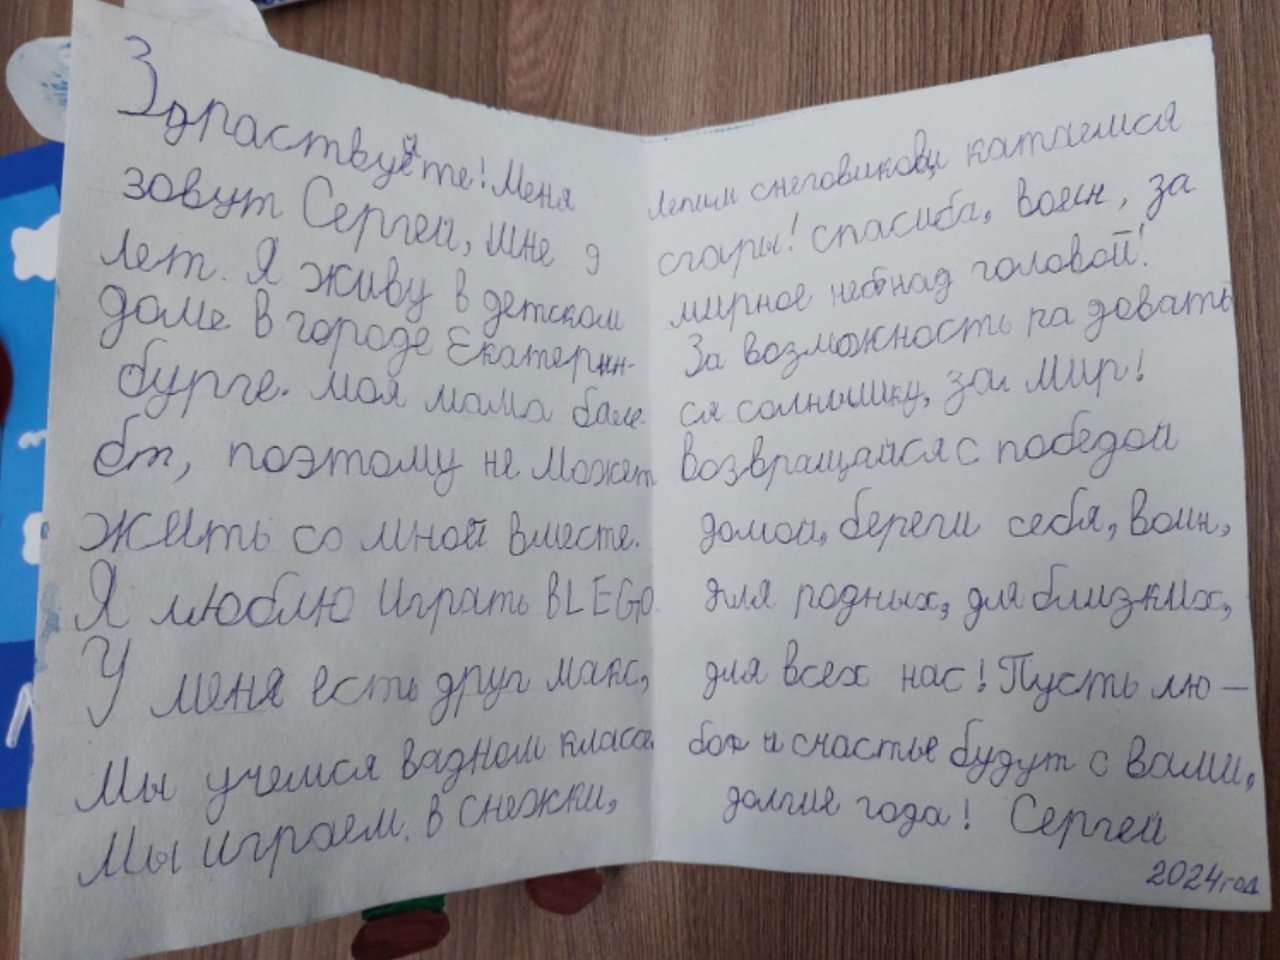 Здраствуйте! Меня
зовут Сергей, мне 9
лет. Я живу в детском
доме в городе Екатерин-
бурге. моя мама боле-
ет, поэтому не может
жить со мной вместе.
Я люблю играть в LEGO.
У меня есть друг Макс,
Мы учемся вадном класе.
Мы играем в снежки,
лепим снеговиков, катаемся
сгоры! спасиба, воин, за
мирное небо над головой!
За возможность радовать
ся солнышку, за мир!
Возвращайся с победой
домой, береги себя, воин,
для родных, для близких,
для всех нас! Пусть лю-
бов и счастье будут с вами,
долгие года! Сергей
2024 год